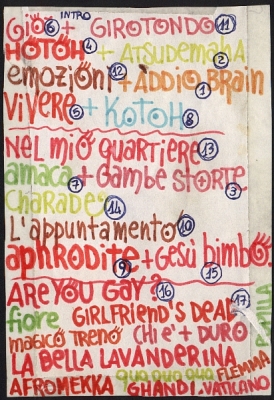 INTRO
GiÒ 6 + GIROTONDO 11
HOTOH 4 + ATSUDEMAHA 2
emoziONi 12 + ADDIO BRAIN 1
VIVERE 5 + KOTOH 8
NEL MIO QUARTIERE 13
amaca 7 + GAMBE STORTE 3
CHARADES 14
L'APPUNTAMENTO 10
APHRODITE 9 + GESÙ BIMBO 15
ARE YOU GAY? 16
fiORE GIRLFRIEND'S DEAD 17
MAGICO TRENO CHI È' + DURO
LA BELLA LAVANDERINA
QUA QUA QUA FLEMMA
AFROMEKKA GHANDI. VATICANO